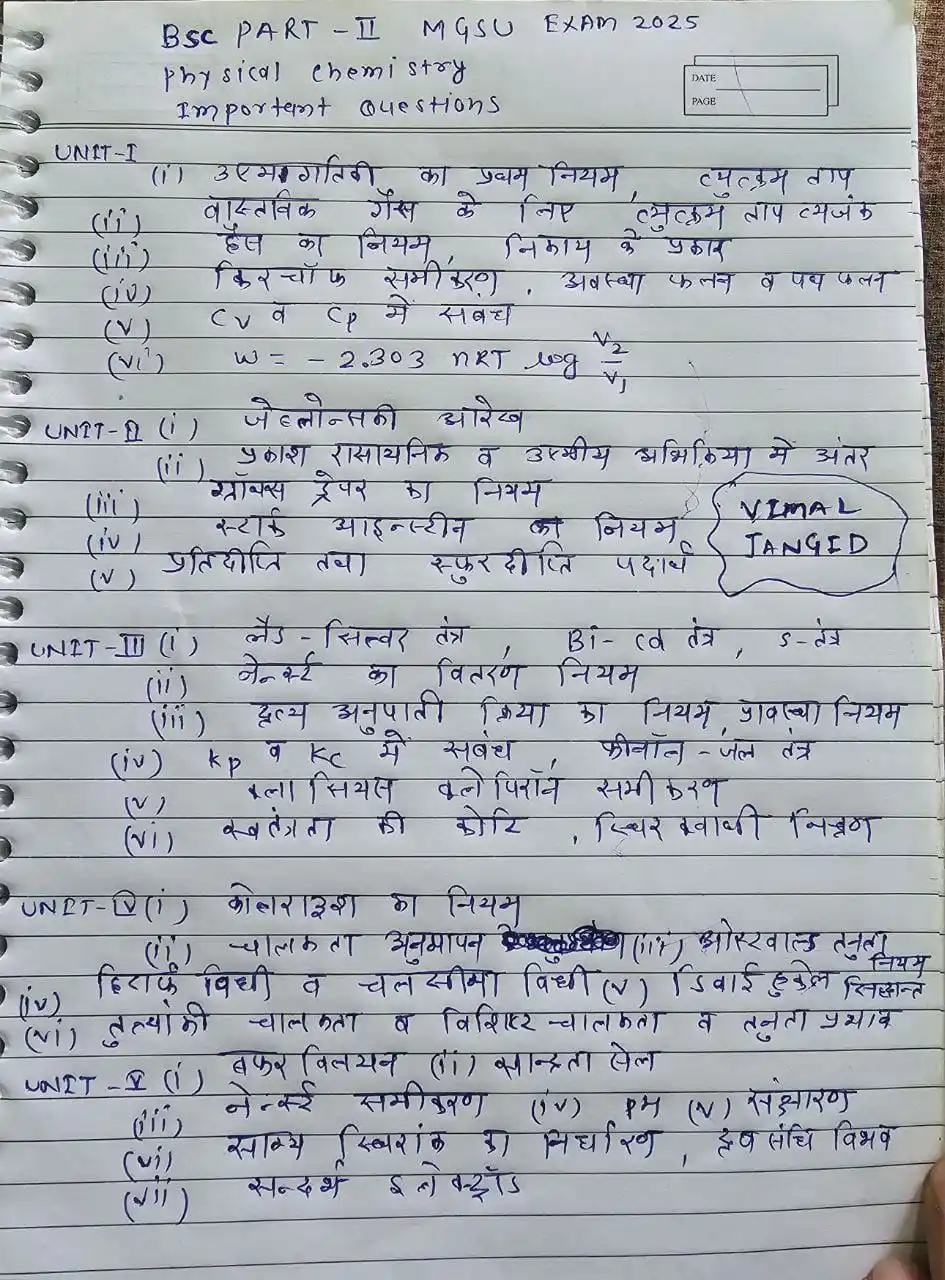 BSC PART - II MGSU EXAM 2025
Physical Chemistry
Important Questions
DATE
PAGE
UNIT-I
(i) उष्मागतिकी का प्रथम नियम, व्युत्क्रम ताप
(ii) वास्तविक गैस के लिए व्युत्क्रम ताप व्यंजक
(iii) हैस का नियम, निकाय के प्रकार
(iv) किरचॉफ समीकरण, अवस्था फलन व पथ फलन
(v) Cv व Cp में सबंध
(vi) W = - 2.303 nRT log V2/V1
UNIT-II (i) जेब्लोन्सकी आरेख
(ii) प्रकाश रासायनिक व उष्मीय अभिक्रिया में अंतर
(iii) ग्रॉथस ड्रेपर का नियम
(iv) स्टार्क आइन्स्टीन का नियम
(v) प्रतिदीप्ति तथा स्फुरदीप्ति पदार्थ
VIMAL
JANGID
UNIT-III (i) लैड - सिल्वर तंत्र, Bi - Cd तंत्र, S-तंत्र
(ii) नेर्न्स्ट का वितरण नियम
(iii) द्रव्य अनुपाती क्रिया का नियम, प्रावस्था नियम
(iv) Kp व Kc में सबंध, फीनॉल - जल तंत्र
(v) क्लासियस क्लेपिरॉन समीकरण
(vi) स्वतंत्रता की कोटि, स्थिर क्वाथी मिश्रण
UNIT-IV (i) कोलराउश का नियम
(ii) चालकता अनुमापन (iii) ओस्टवाल्ड तनुता नियम
(iv) हिटार्फ विधी व चल सीमा विधी (v) डिबाई हुकेल सिद्धान्त
(vi) तुल्यांकी चालकता व विशिष्ट चालकता व तनुता प्रभाव
UNIT-V (i) बफर विलयन (ii) सान्द्रता सेल
(iii) नेर्न्स्ट समीकरण (iv) PH (v) संक्षारण
(vi) साम्य स्थिरांक का निर्धारण, द्रव संधि विभव
(vii) सन्दर्भ इलेक्ट्रॉड